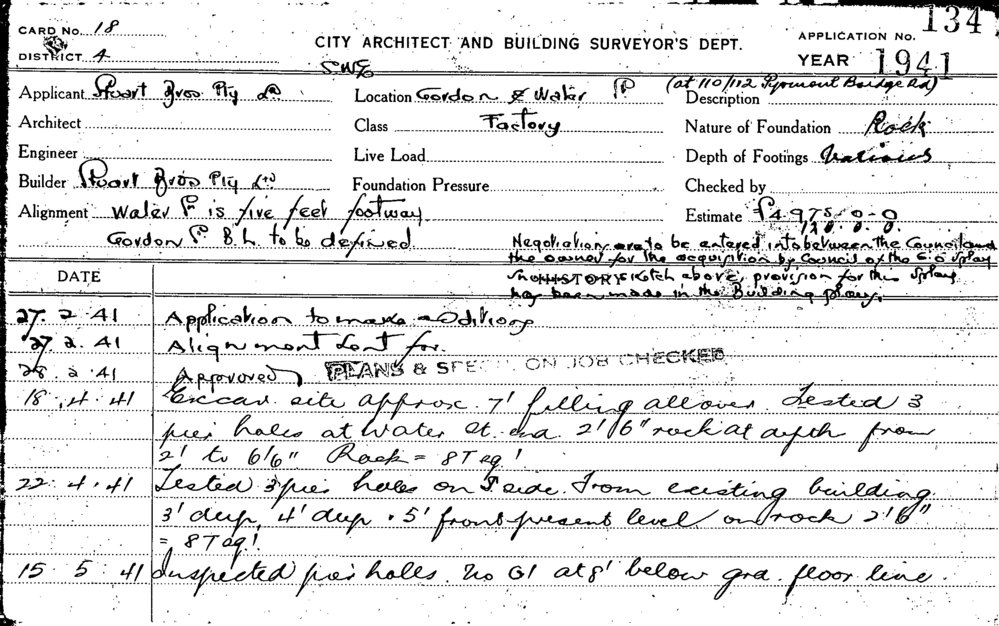 CARD No. 18
DISTRICT 4
CITY ARCHITECT AND BUILDING SURVEYOR'S DEPT.
APPLICATION No. 134
YEAR 1941
Applicant Stuart Bros Pty
Location Gordon & Water
(at 110/112 Pyrmont Bridge Rd)
Description
Architect
Class Factory
Nature of Foundation Rock
Engineer
Live Load
Depth of Footings Various
Builder Stuart Bros Pty
Foundation Pressure
Checked by
Alignment Water is five feet footway
Estimate £4975-0-0
Gordon B.L. to be defined
Negotiations are to be entered into between the Council and
the owner for the acquisition by Council of the splay
HISTORY sketch above, provision for this splay
has been made in the Building plans.
DATE
27. 2. 41 Application to make additions
27. 2. 41 Alignment sent for.
28. 2. 41 Approved PLANS & SPE ON JOB CHECKED
18. 4. 41 Excav. site approx. 7' filling all over. Tested 3
pier holes at Water St. end 2'6" rock at depth from
2' to 6'6" Rock = 8T
22. 4. 41 Tested 3 pier holes on side. From existing building
3' deep, 4' deep + 5' from present level on rock 2'6"
= 8T
15. 5. 41 Inspected pier holls. No G1 at 8' below grd. floor line.